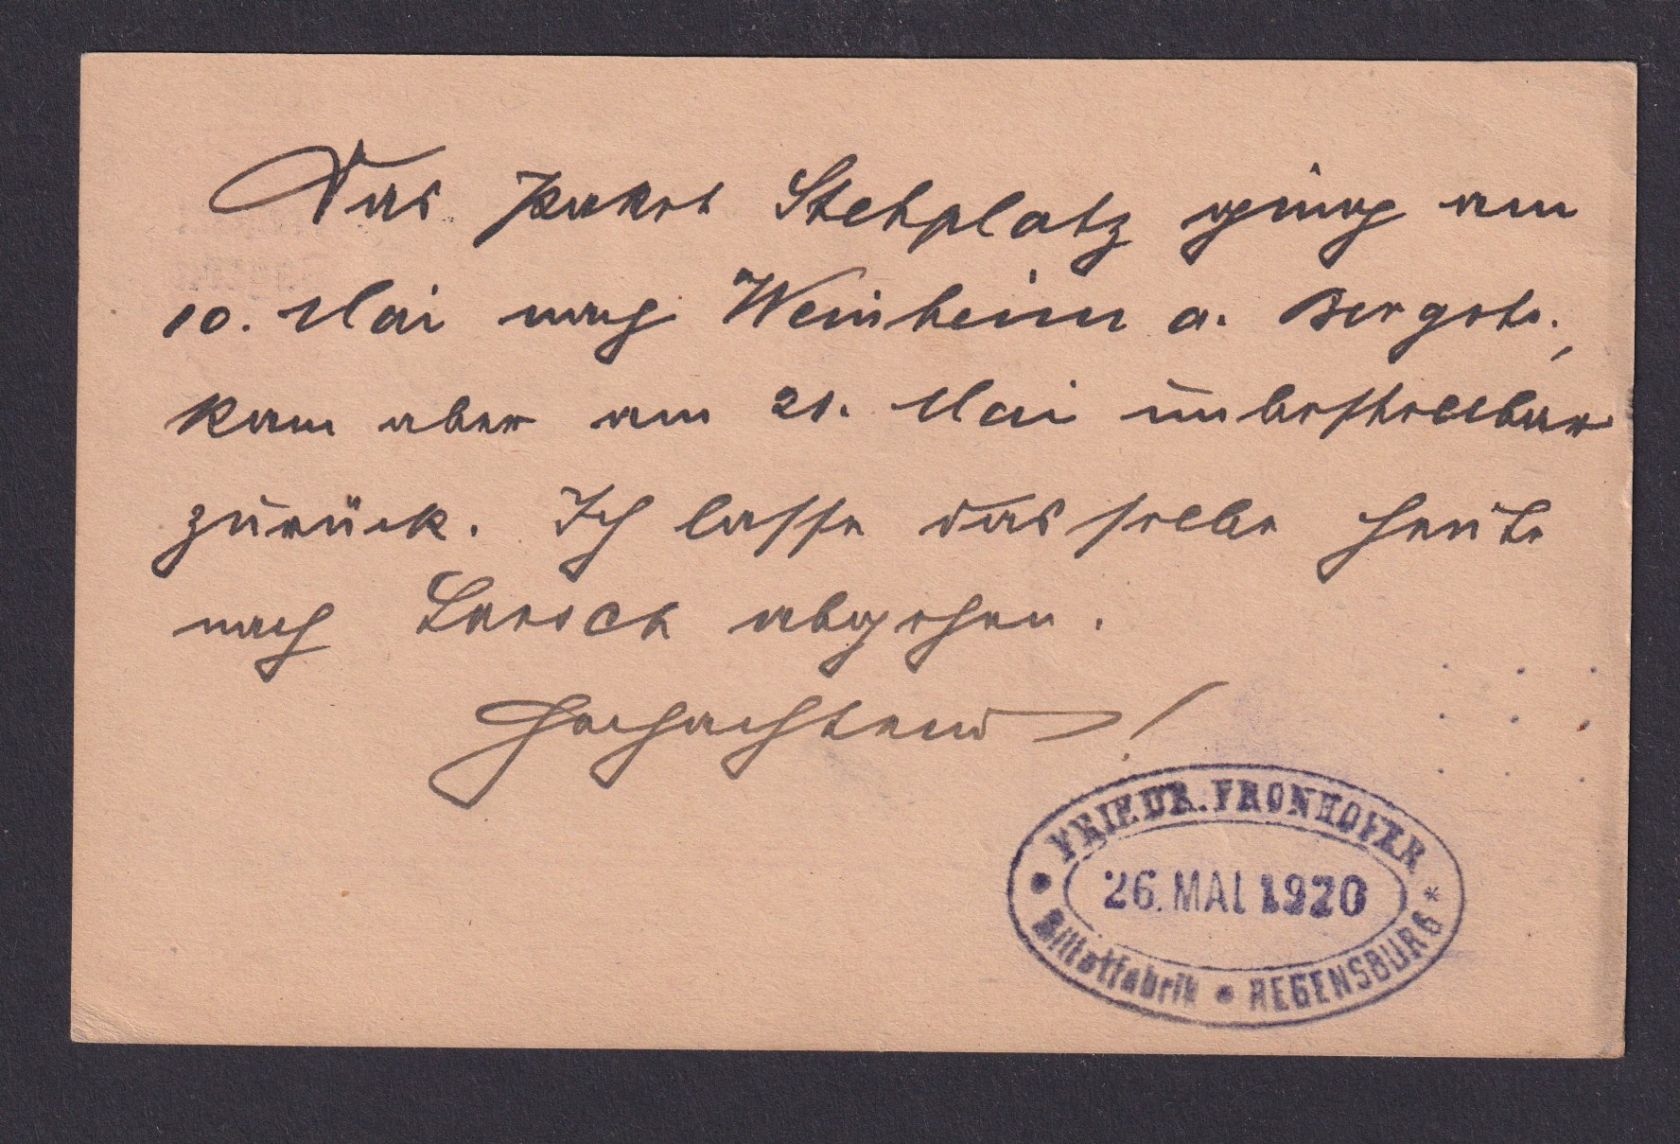 Das Paket Stehplatz ging am
10. Mai nach Weinheim a. Bergstr.,
kam aber am 21. Mai unbestellbar
zurück. Ich lasse dasselbe heute
nach Lorsch abgehen.
Hochachtend!
FRIEDR. FRONHOFER
26. MAI 1920
Billetfabrik • REGENSBURG *